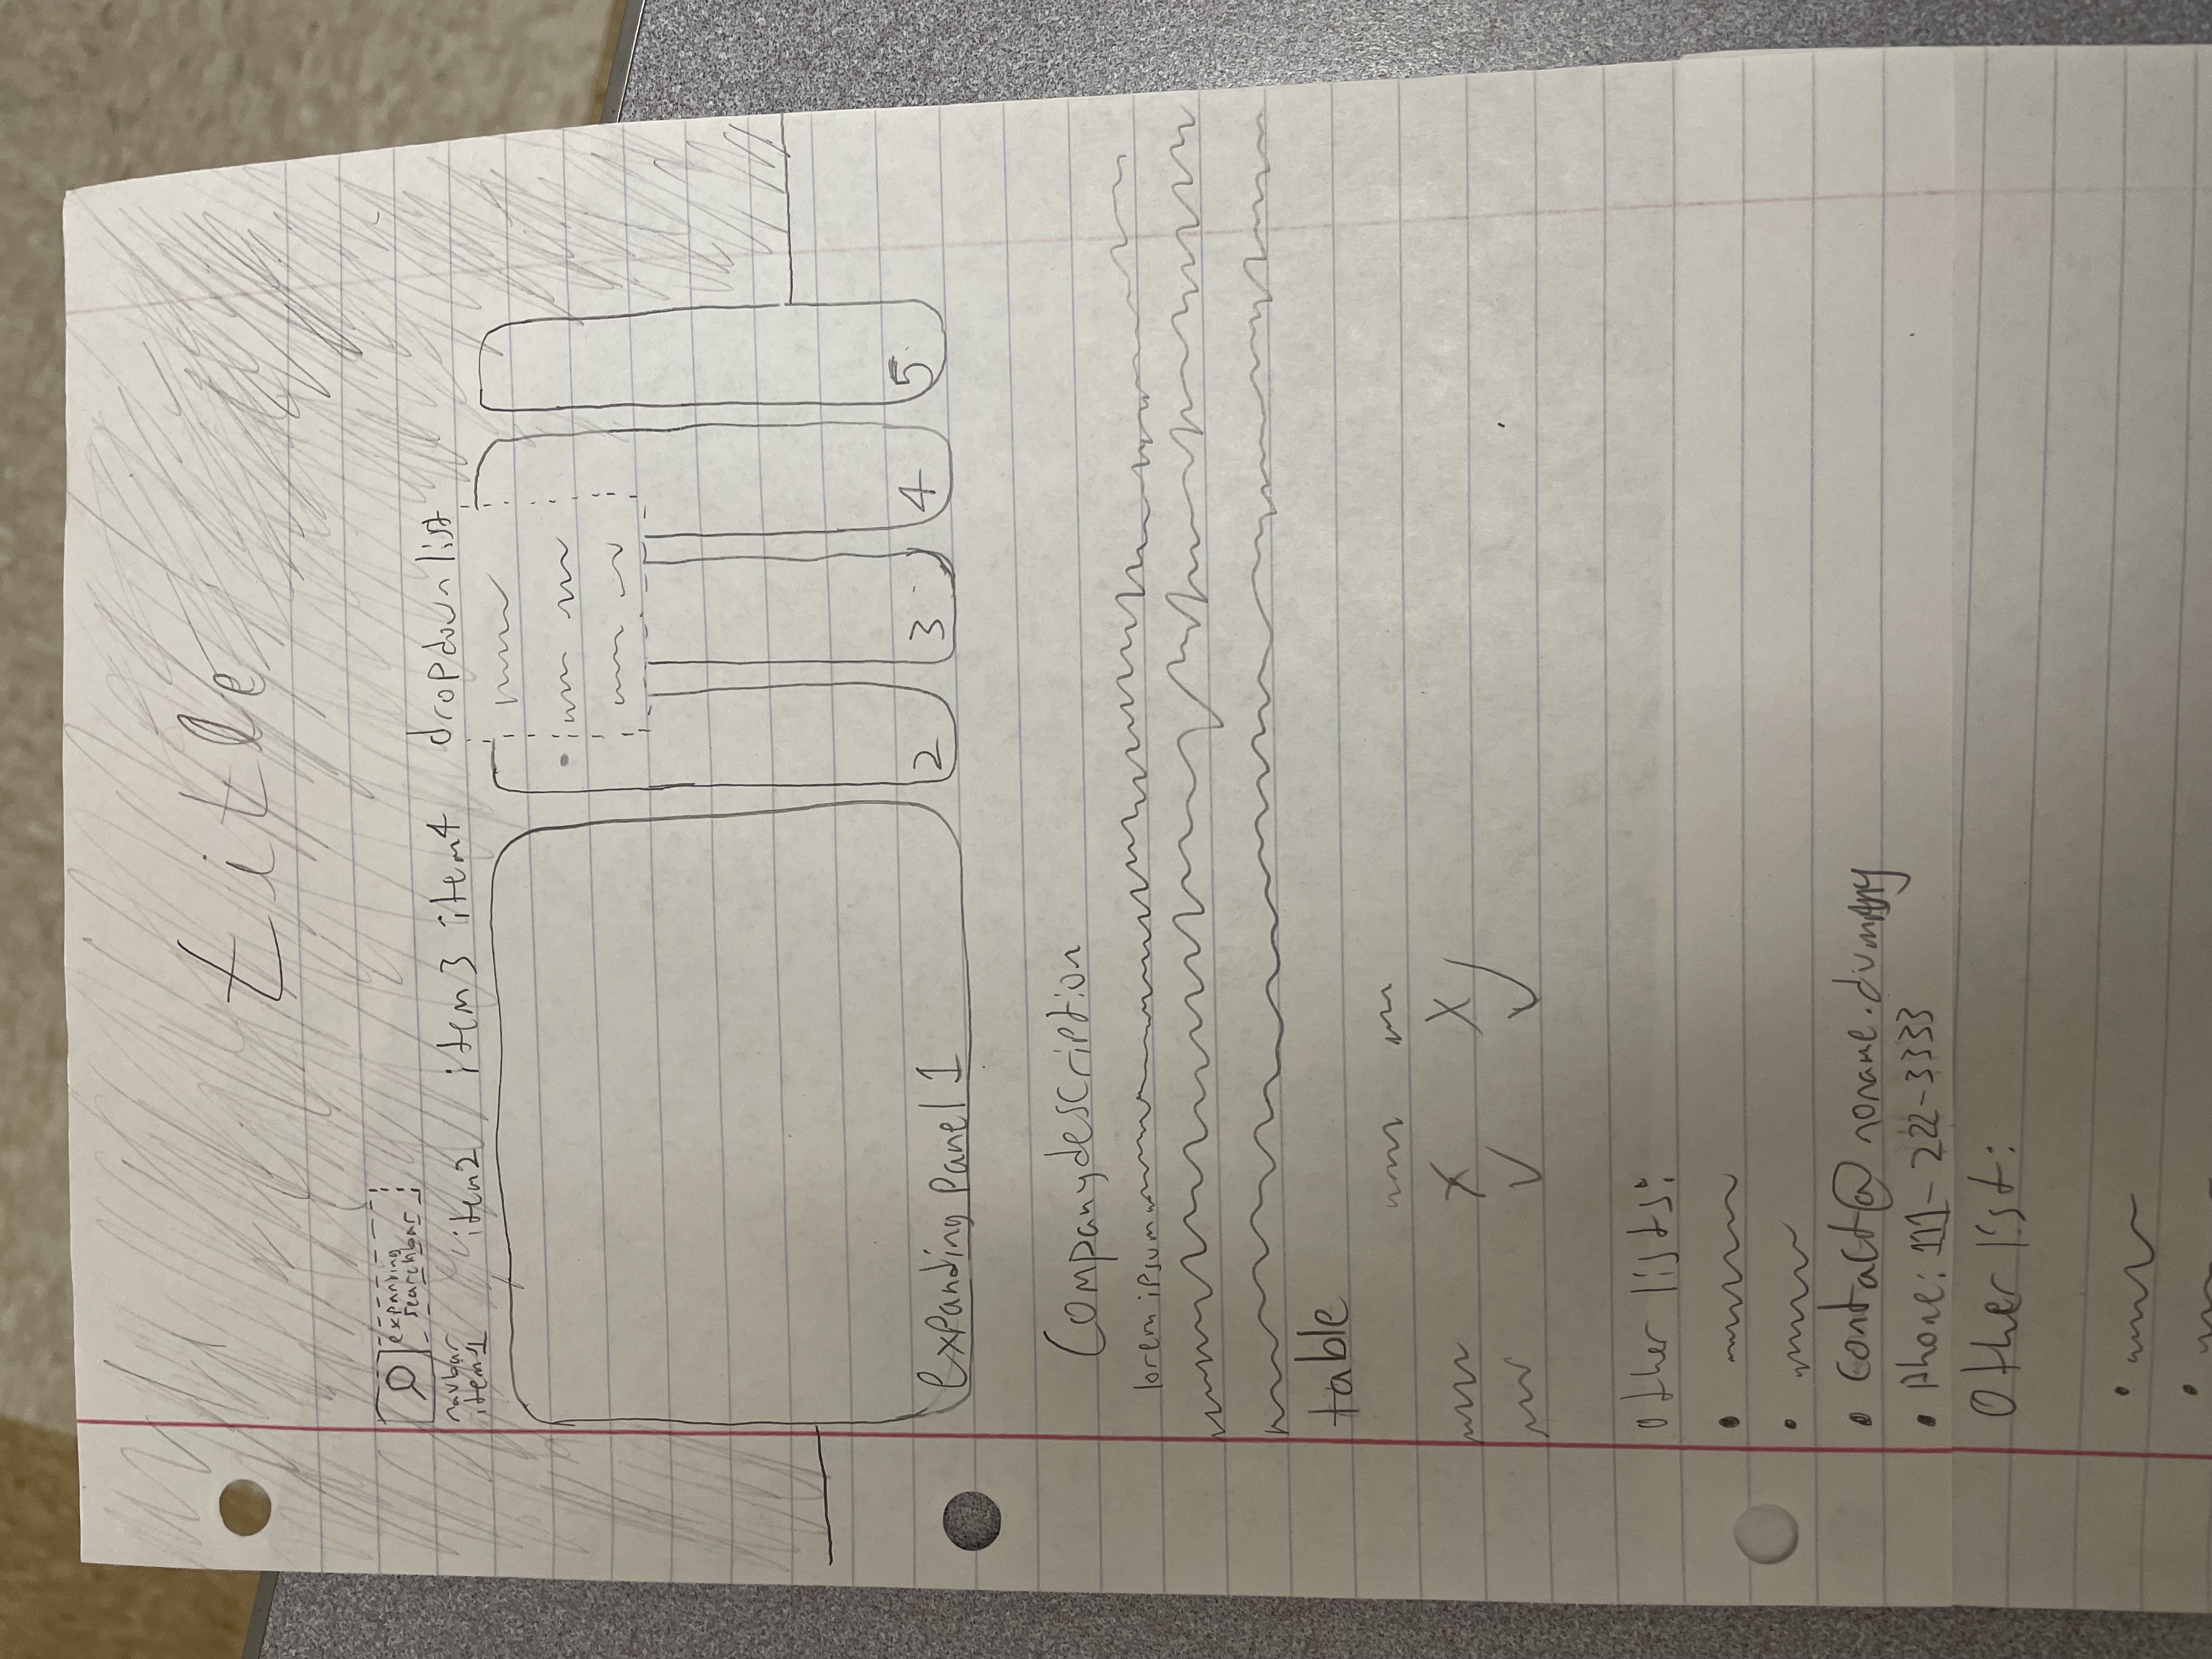 title
expanding
searchbar
navbar
item1 item2 item3 item4 dropdown list
expanding panel 1 2 3 4 5
Company description
lorem ipsum
table
X X
✓ ✓
Other lists:
• contact@noname.dummy
• Phone: 111-222-3333
Other list: